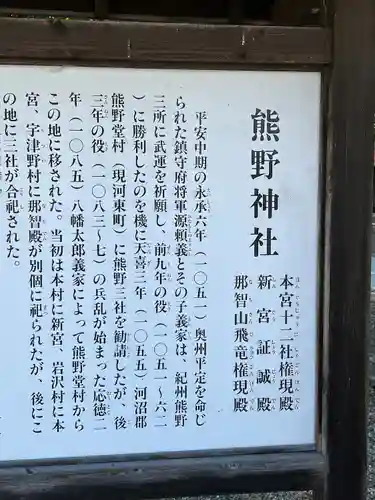 熊野神社
本宮十二社権現殿
新宮証誠殿
那智山飛竜権現殿
平安中期の永承六年（一〇五一）奥州平定を命じ
られた鎮守府将軍源頼義とその子義家は、紀州熊野
三所に武運を祈願し、前九年の役（一〇五一〜六二
）に勝利したのを機に天喜三年（一〇五五）河沼郡
熊野堂村（現河東町）に熊野三社を勧請したが、後
三年の役（一〇八三〜七）の兵乱が始まった応徳二
年（一〇八五）八幡太郎義家によって熊野堂村から
この地に移された。当初は本村に新宮、岩沢村に本
宮、宇津野村に那智殿が別個に祀られたが、後にこ
の地に三社が合祀された。